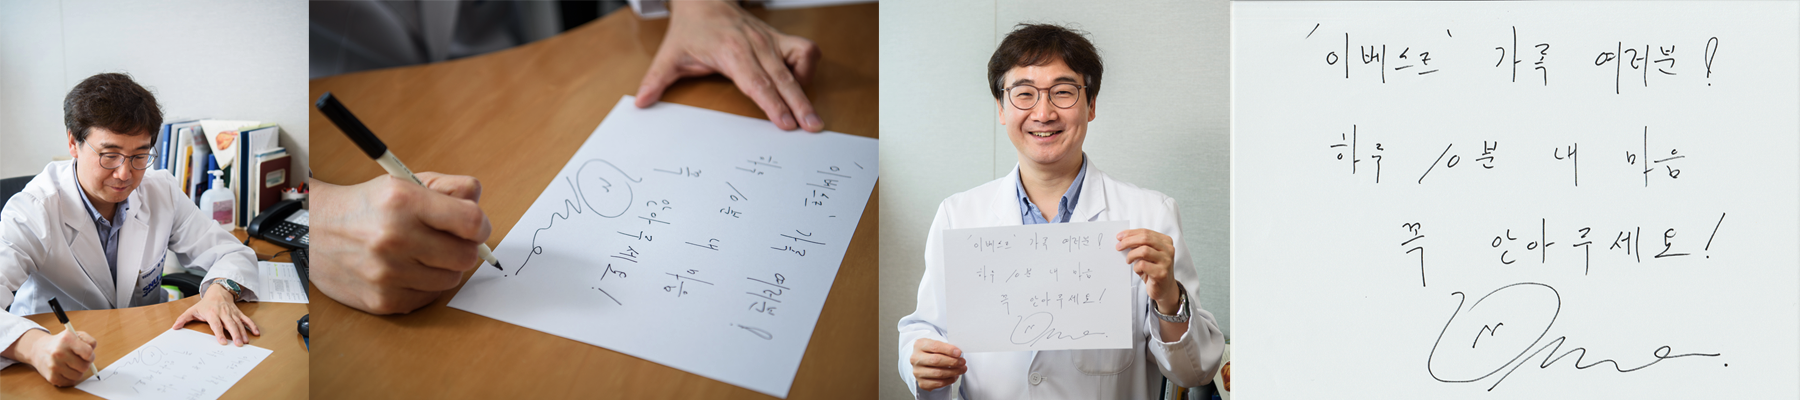 '이베스트' 가족 여러분!
하루 10분 내 마음
꼭 안아주세요!